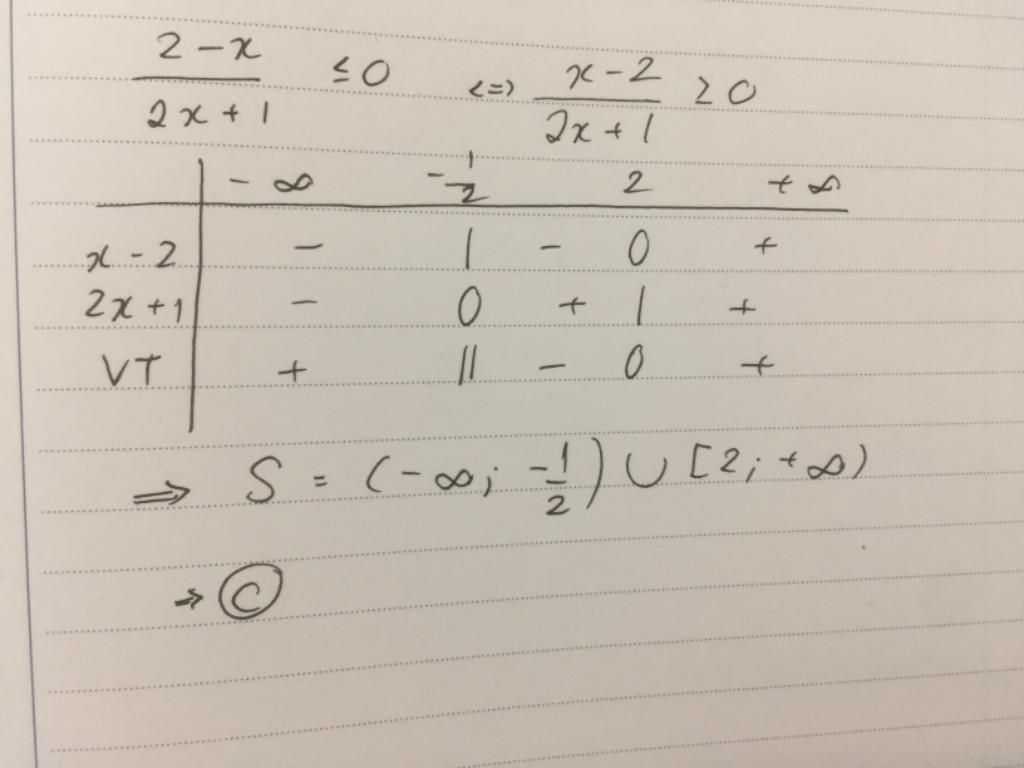 (2 - x)/(2x + 1) ≤ 0 <=> (x - 2)/(2x + 1) ≥ 0
-∞ -1/2 2 +∞
x - 2 - | - 0 +
2x + 1 - 0 + | +
VT + || - 0 +
⇒ S = (-∞; -1/2) ∪ [2; +∞)
⇒ C